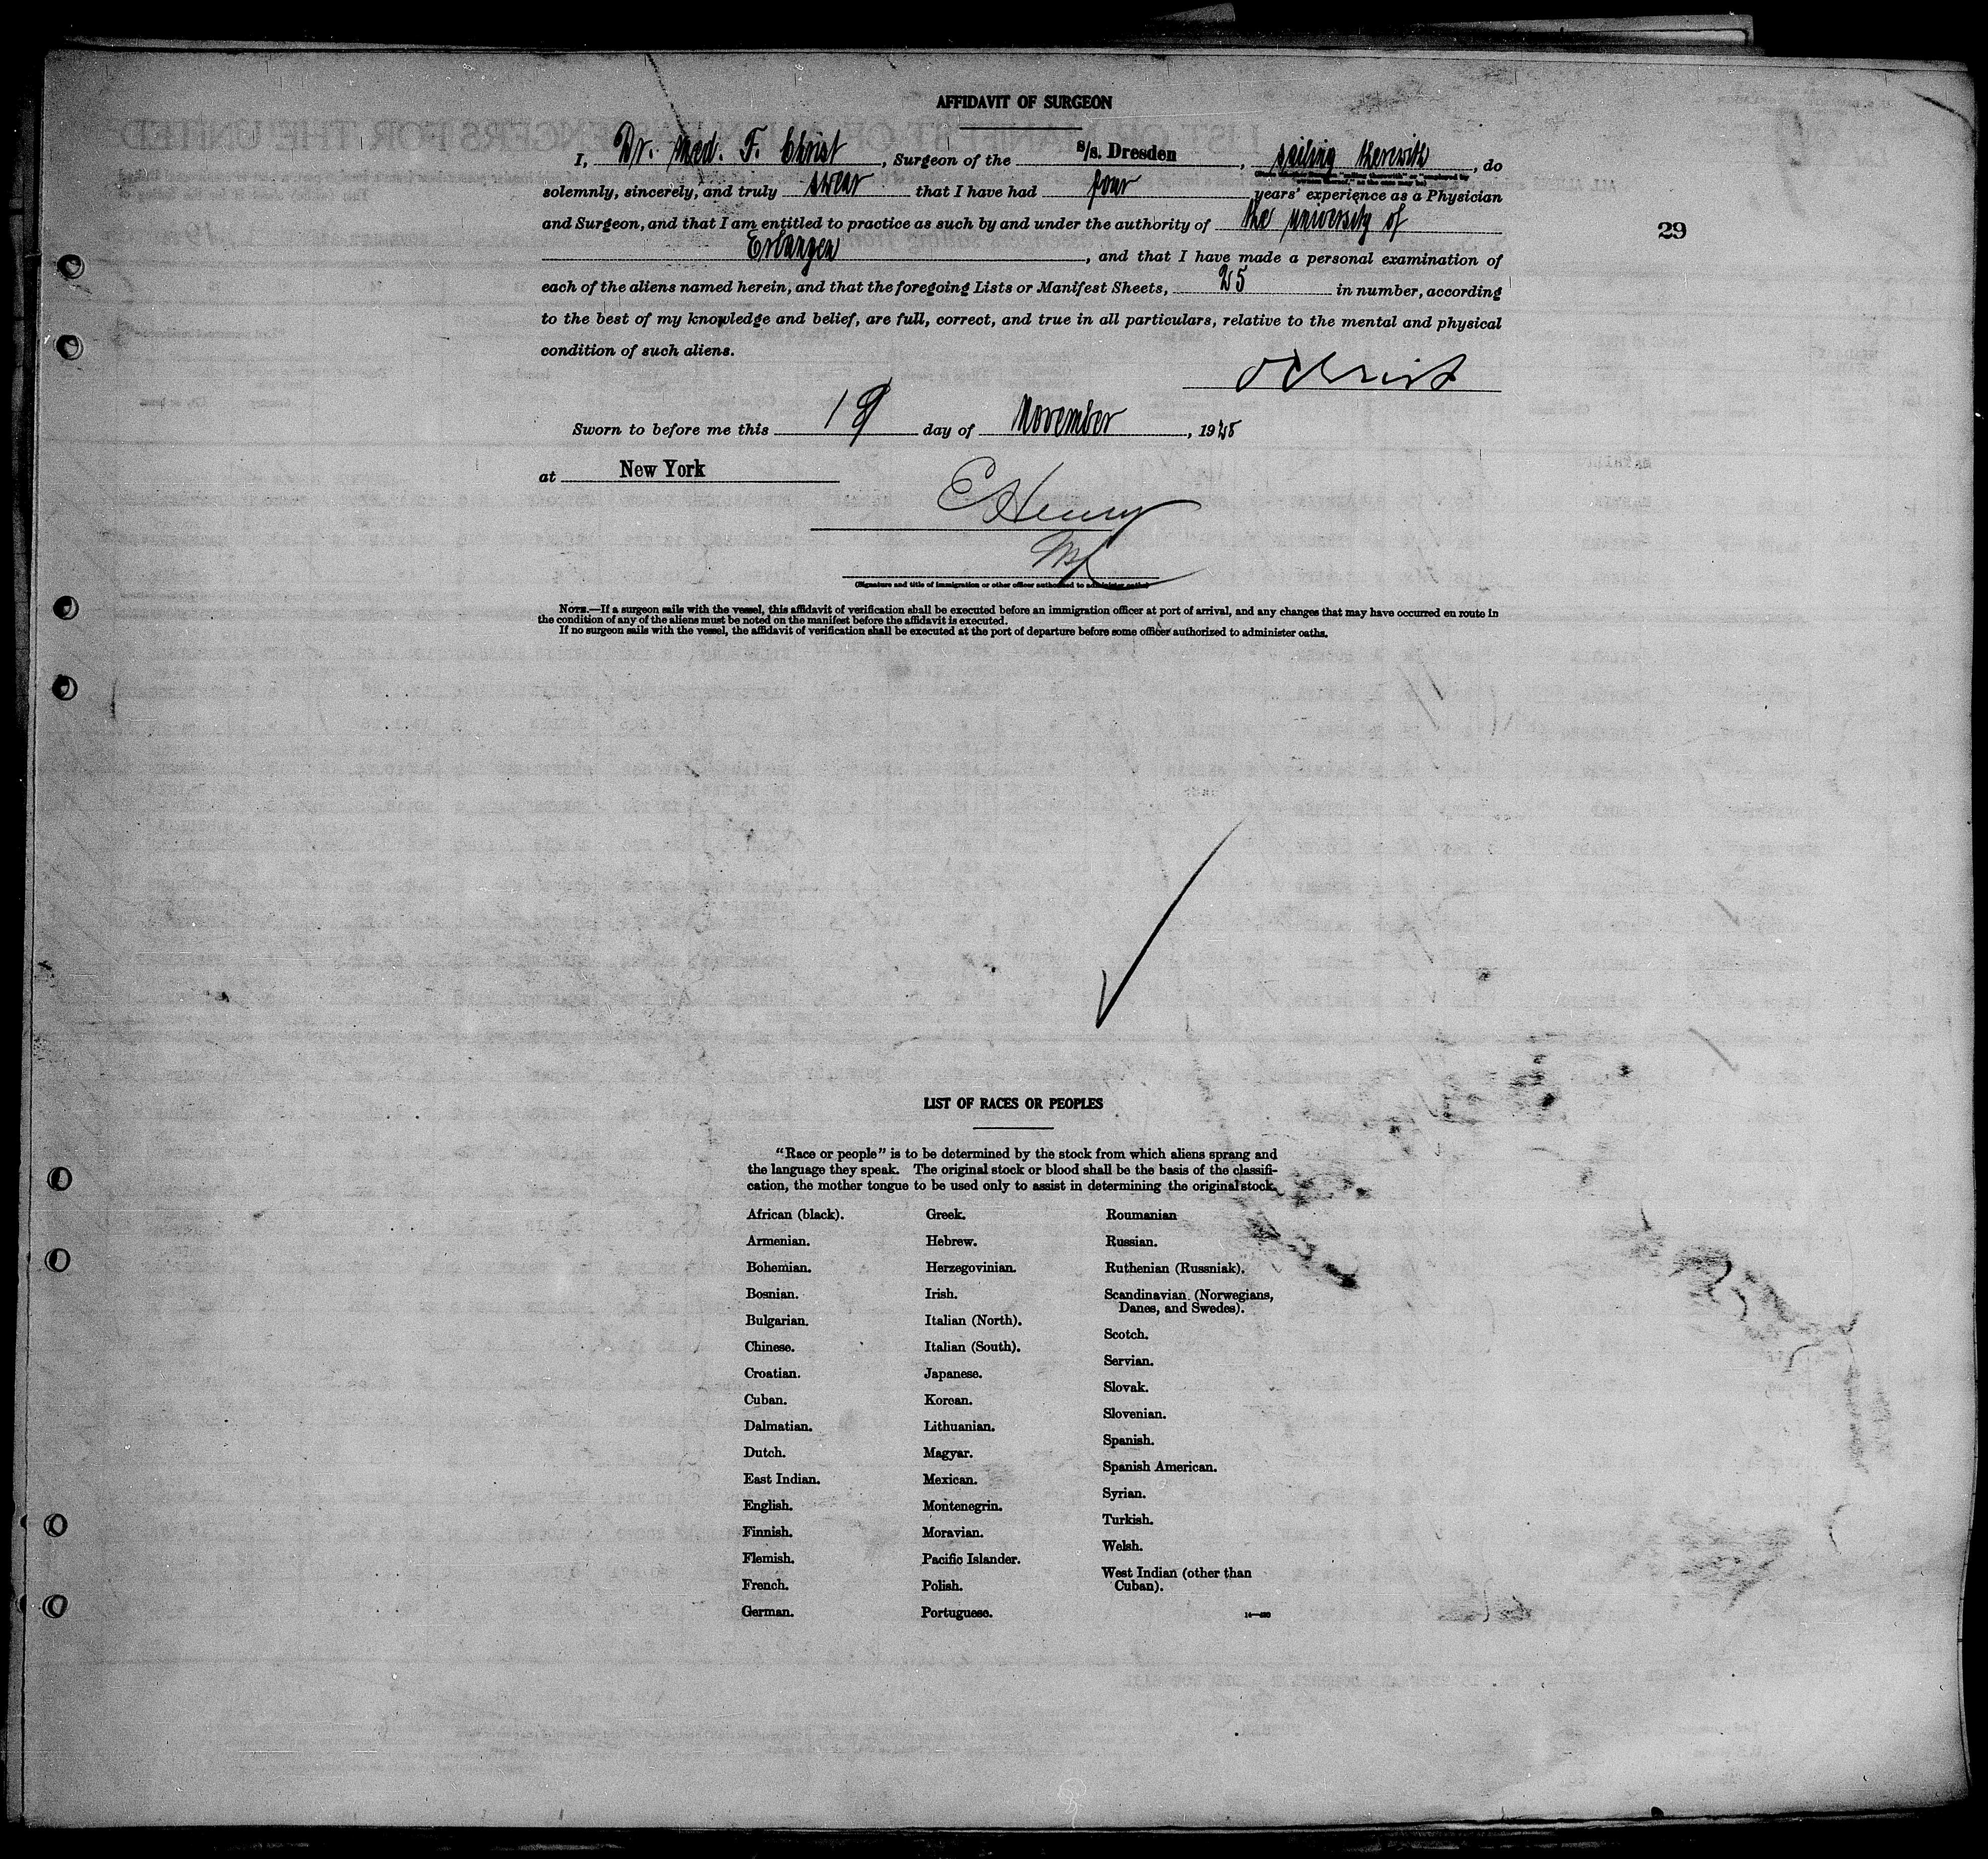 AFFIDAVIT OF SURGEON
I, Dr. med. F. Christ, Surgeon of the S/s. Dresden, sailing therewith, do
solemnly, sincerely, and truly swear that I have had four years' experience as a Physician
and Surgeon, and that I am entitled to practice as such by and under the authority of the university of
Erlangen, and that I have made a personal examination of
29
each of the aliens named herein, and that the foregoing Lists or Manifest Sheets, 25 in number, according
to the best of my knowledge and belief, are full, correct, and true in all particulars, relative to the mental and physical
condition of such aliens.
Christ
Sworn to before me this 19 day of November, 1925
at New York
E Henry
(Signature and title of immigration or other officer authorized to administer oaths)
NOTE.—If a surgeon sails with the vessel, this affidavit of verification shall be executed before an immigration officer at port of arrival, and any changes that may have occurred en route in
the condition of any of the aliens must be noted on the manifest before the affidavit is executed.
If no surgeon sails with the vessel, the affidavit of verification shall be executed at the port of departure before some officer authorized to administer oaths.
LIST OF RACES OR PEOPLES
"Race or people" is to be determined by the stock from which aliens sprang and
the language they speak. The original stock or blood shall be the basis of the classifi-
cation, the mother tongue to be used only to assist in determining the original stock.
African (black).
Armenian.
Bohemian.
Bosnian.
Bulgarian.
Chinese.
Croatian.
Cuban.
Dalmatian.
Dutch.
East Indian.
English.
Finnish.
Flemish.
French.
German.
Greek.
Hebrew.
Herzegovinian.
Irish.
Italian (North).
Italian (South).
Japanese.
Korean.
Lithuanian.
Magyar.
Mexican.
Montenegrin.
Moravian.
Pacific Islander.
Polish.
Portuguese.
Roumanian
Russian.
Ruthenian (Russniak).
Scandinavian (Norwegians,
Danes, and Swedes).
Scotch.
Servian.
Slovak.
Slovenian.
Spanish.
Spanish American.
Syrian.
Turkish.
Welsh.
West Indian (other than
Cuban).